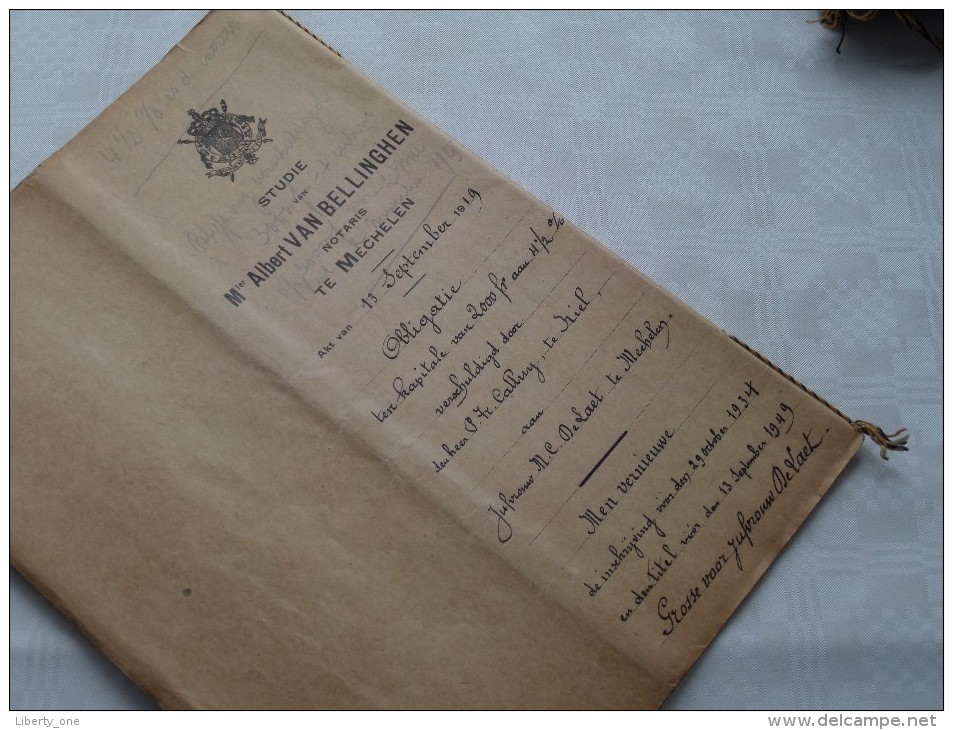 4 1/2 %
STUDIE
van
Mter Albert VAN BELLINGHEN
NOTARIS
TE MECHELEN
Akt van 13 September 1919
Obligatie
ten kapitale van 2000 fr aan 4 1/2 %
verschuldigd door
den heer P. Fr. te Niel,
aan
Jufvrouw M. C. De Laet te Mechelen.
Men vernieuwe
de inschrijving vóór den 29 october 1934
en den titel vóór den 13 September 1949
Grosse voor Jufvrouw De Laet.
Liberty_one
www.delcampe.net